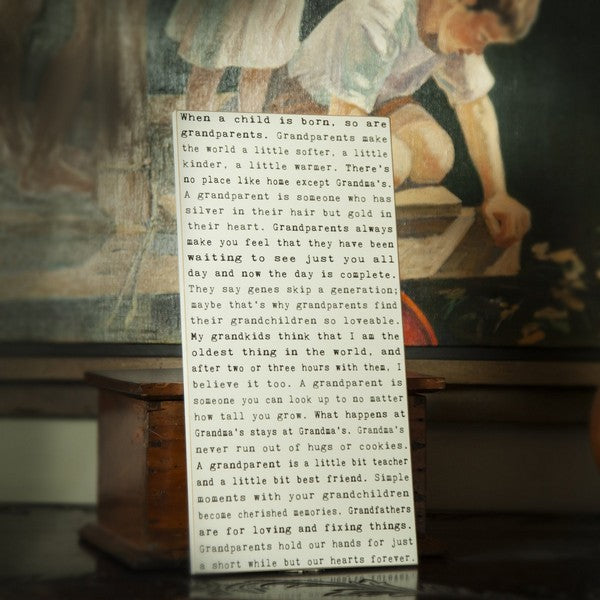 When a child is born, so are
grandparents. Grandparents make
the world a little softer, a little
kinder, a little warmer. There's
no place like home except Grandma's.
A grandparent is someone who has
silver in their hair but gold in
their heart. Grandparents always
make you feel that they have been
waiting to see just you all
day and now the day is complete.
They say genes skip a generation;
maybe that's why grandparents find
their grandchildren so loveable.
My grandkids think that I am the
oldest thing in the world, and
after two or three hours with them, I
believe it too. A grandparent is
someone you can look up to no matter
how tall you grow. What happens at
Grandma's stays at Grandma's. Grandma's
never run out of hugs or cookies.
A grandparent is a little bit teacher
and a little bit best friend. Simple
moments with your grandchildren
become cherished memories. Grandfathers
are for loving and fixing things.
Grandparents hold our hands for just
a short while but our hearts forever.